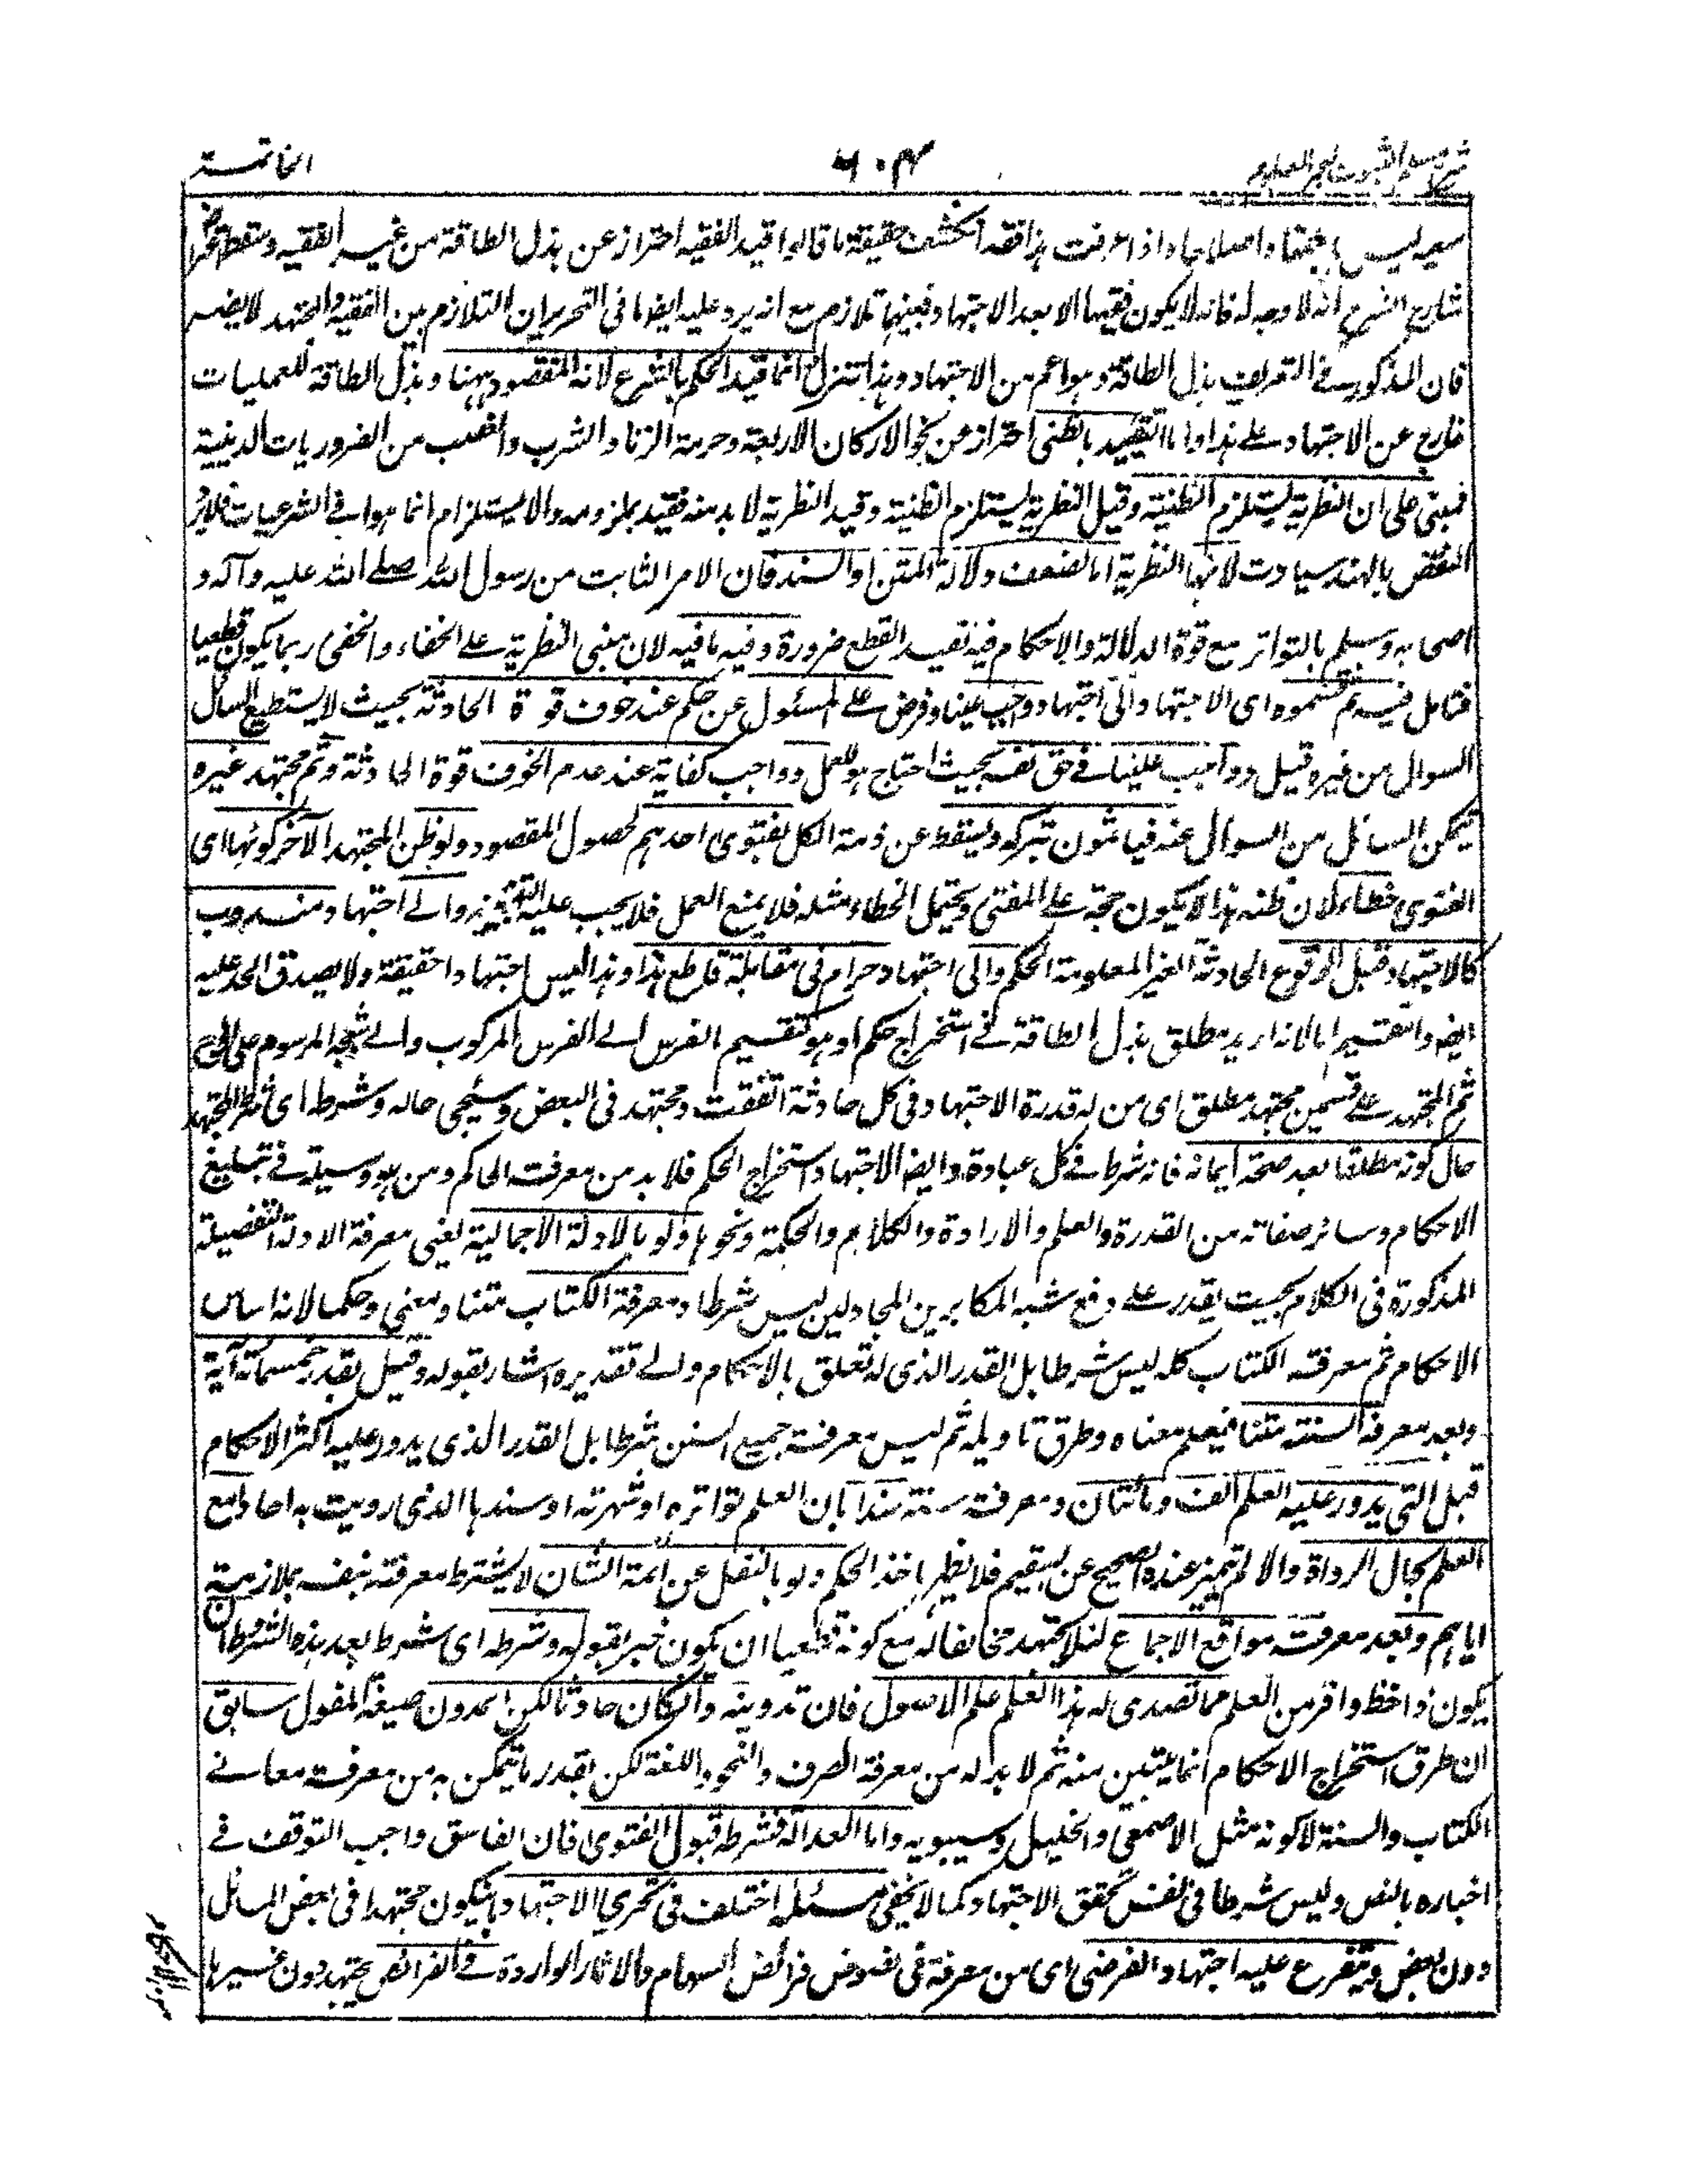 شرح مسلم الثبوت لبحر العلوم ٦٠٤ الخاتمة
سعيه ليس باجتهاد اصطلاحا واذا عرفت هذا فقد انكشف حقيقة ما قالوا قيد الفقيه احتراز عن بذل الطاقة من غير الفقيه وسقط
شارح الشرح انه لا وجه له فانه لا يكون فقيها الا بعد الاجتهاد فبينهما تلازم مع انه يرد عليه ايضا ما في التحرير ان التلازم بين الفقيه والمجتهد لا يضر
فان المذكور في التعريف بذل الطاقة وهو اعم من الاجتهاد وهذا تنزل انما قيد الحكم بالشرع لانه المقصود ههنا وبذل الطاقة للعمليات
خارج عن الاجتهاد على هذا واما التقييد بالظني احتراز عن نحو الاركان الاربعة وحرمة الزنا والشرب والغصب من الضروريات الدينية
فمبني على ان النظرية يستلزم الظنية وقيل النظرية يستلزم الظنية وقيد النظرية لا بد منه فقيد بملزومه والاستلزام انما هو في الشرعيات فلا يرد
النقض بالهندسيات لانها النظرية اما لضعف دلالة المتن او السند فان الامر الثابت من رسول الله صلى الله عليه وآله و
اصحابه وسلم بالتواتر مع قوة الدلالة والاحكام فيه تفيد القطع ضرورة وفيه ما فيه لان مبنى النظرية على الخفاء والخفي ربما يكون قطعيا
فتامل فيه ثم قسموه اى الاجتهاد الى اجتهاد واجب عينا وفرض على المسئول عن حكم عند خوف فوة الحادثة بحيث لا يستطيع السائل
السوال من غيره قيل وواجب علينا في حق نفسه بحيث احتاج هو للعمل وواجب كفاية عند عدم الخوف فوة الحادثة وثم مجتهد غيره
يتمكن السائل من السوال عنه فياثمون بتركه ويسقط عن ذمة الكل بفتوى احدهم لحصول المقصود ولو ظن المجتهد الآخر كونها اى
الفتوى خطاء لان ظنه هذا لا يكون حجة على المفتي ويحتمل الخطاء مثله فلا يمنع العمل فلا يجب عليه والى اجتهاد مندوب
كالاجتهاد قبل الوقوع الحادثة الغير المعلومة الحكم والى اجتهاد حرام في مقابلة قاطع هذا وهذا ليس اجتهادا حقيقة ولا يصدق الحد عليه
ايضا والتقسيم اما لانه اريد مطلق بذل الطاقة في استخراج حكم او هو كتقسيم الفرس الى الفرس المركوب والى شبحه المرسوم على اللوح
ثم المجتهد على قسمين مجتهد مطلق اى من له قدرة الاجتهاد في كل حادثة اتفقت ومجتهد في البعض وسيجئ حاله وشرطه اى شرط المجتهد
حال كونه مطلقا بعد صحة ايمانه فانه شرط في كل عبادة وايضا الاجتهاد استخراج الحكم فلا بد من معرفت الحاكم ومن هو وسيلة في تبليغ
الاحكام وسائر صفاته من القدرة والعلم والارادة والكلام والحكمة ونحوها ولو بالادلة الاجمالية يعني معرفة الادلة التفصيلة
المذكورة في الكلام بحيث يقدر على دفع شبه المكابرين المجادلين ليس شرطا ومعرفة الكتاب متنا ومعنى وحكما لانه اساس
الاحكام ثم معرفة الكتاب كله ليس شرطا بل القدر الذي له تعلق بالاحكام والى تقديره اشار بقوله وقيل بقدر خمسمائة آية
وبعد معرفة السنة متنا فيعلم معناه وطرق تاويله ثم ليس معرفة جميع السنن شرطا بل القدر الذي يدور عليه اكثر الاحكام
قيل التي يدور عليه العلم الف ومائتان ومعرفت سنته سندا بان العلم تواتره او شهرته او سندها الذي رويت به احادا مع
العلم بحال الرواة والا لم يتميز عنده الصحيح عن السقيم فلا يظهر اخذ الحكم ولو بالنقل عن ائمة الشان لا يشترط معرفته بنفسه بملازمته
اياهم وبعد معرفت مواقع الاجماع لئلا يجتهد مخالفا له مع كونه قطعيا ان يكون خبر لقوله وشرطه اى شرط بعد هذه الشروط ان
يكون ذا حظ وافر من العلم مما تصدى له هذا العلم علم الاصول فان تدوينه وان كان حادثا لكن المدون صيغة المفعول سابق
ان طرق استخراج الاحكام انما يتبين منه ثم لا بد له من معرفة الصرف والنحو واللغة لكن بقدر ما يتمكن به من معرفت معاني
الكتاب والسنة لا كونه مثل الاصمعي والخليل وسيبويه واما العدالة فشرط قبول الفتوى فان الفاسق واجب التوقف في
اخباره بالنص وليس شرطا في نفس تحقق الاجتهاد كما لا يخفى مسئلة اختلف في تجزي الاجتهاد بان يكون مجتهدا في بعض المسائل
دون بعض ويتفرع عليه اجتهاد الفرضي اى من معرفة في نصوص فرائض السهام والاثار الواردة في الفرائض يجتهد دون غيرها